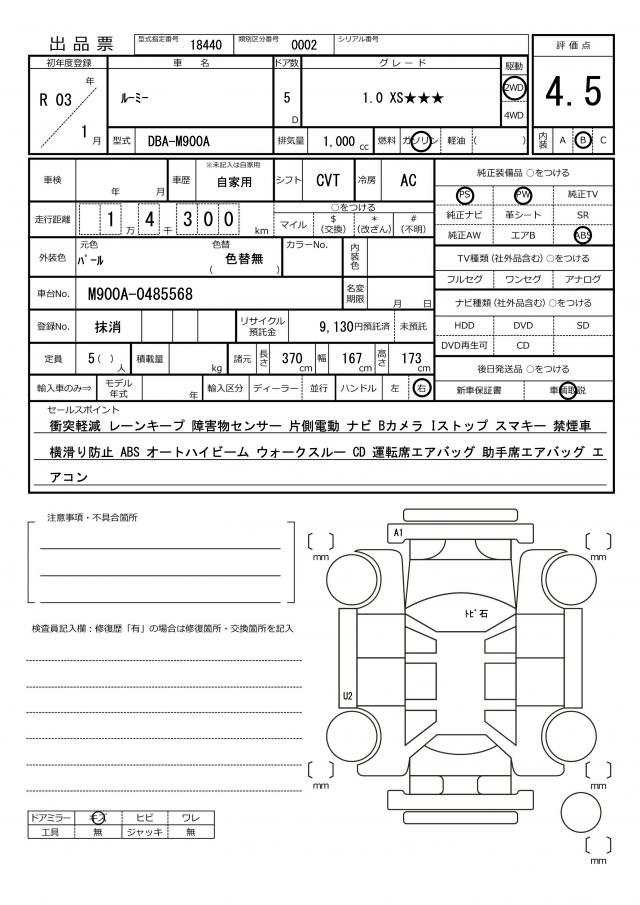 出品票 型式指定番号 18440 類別区分番号 0002 シリアル番号
初年度登録 車名 ドア数 グレード 駆動 評価点
R 03 年 1 月 ﾙｰﾐｰ 5 D 1.0 XS★★★ 2WD 4WD 4.5
型式 DBA-M900A 排気量 1,000 cc 燃料 ガソリン 軽油 ( ) 内装 A B C
車検 年 月 車歴 ※未記入は自家用 自家用 シフト CVT 冷房 AC
走行距離 1 万 4 千 3 0 0 km ○をつける マイル $ (交換) * (改ざん) # (不明)
外装色 元色 ﾊﾟｰﾙ 色替 ( 色替無 ) カラーNo. 内装色
車台No. M900A-0485568 名変期限 月 日
登録No. 抹消 リサイクル預託金 9,130円預託済 未預託
定員 5 ( ) 人 積載量 kg 諸元 長さ 370 cm 幅 167 cm 高さ 173 cm
輸入車のみ⇒ モデル年式 年 輸入区分 ディーラー 並行 ハンドル 左 右
純正装備品 ○をつける
PS PW 純正TV
純正ナビ 革シート SR
純正AW エアB ABS
TV種類 (社外品含む) ○をつける
フルセグ ワンセグ アナログ
ナビ種類 (社外品含む) ○をつける
HDD DVD SD
DVD再生可 CD
後日発送品 ○をつける
新車保証書 車輌取説
セールスポイント
衝突軽減 レーンキープ 障害物センサー 片側電動 ナビ Bカメラ Iストップ スマキー 禁煙車
横滑り防止 ABS オートハイビーム ウォークスルー CD 運転席エアバッグ 助手席エアバッグ エ
アコン
注意事項・不具合箇所
検査員記入欄：修復歴「有」の場合は修復箇所・交換箇所を記入
ドアミラー キズ ヒビ ワレ
工具 無 ジャッキ 無
A1
[ ] mm [ ] mm
ﾄﾋﾞ石
U2
[ ] mm [ ] mm
[ ] mm